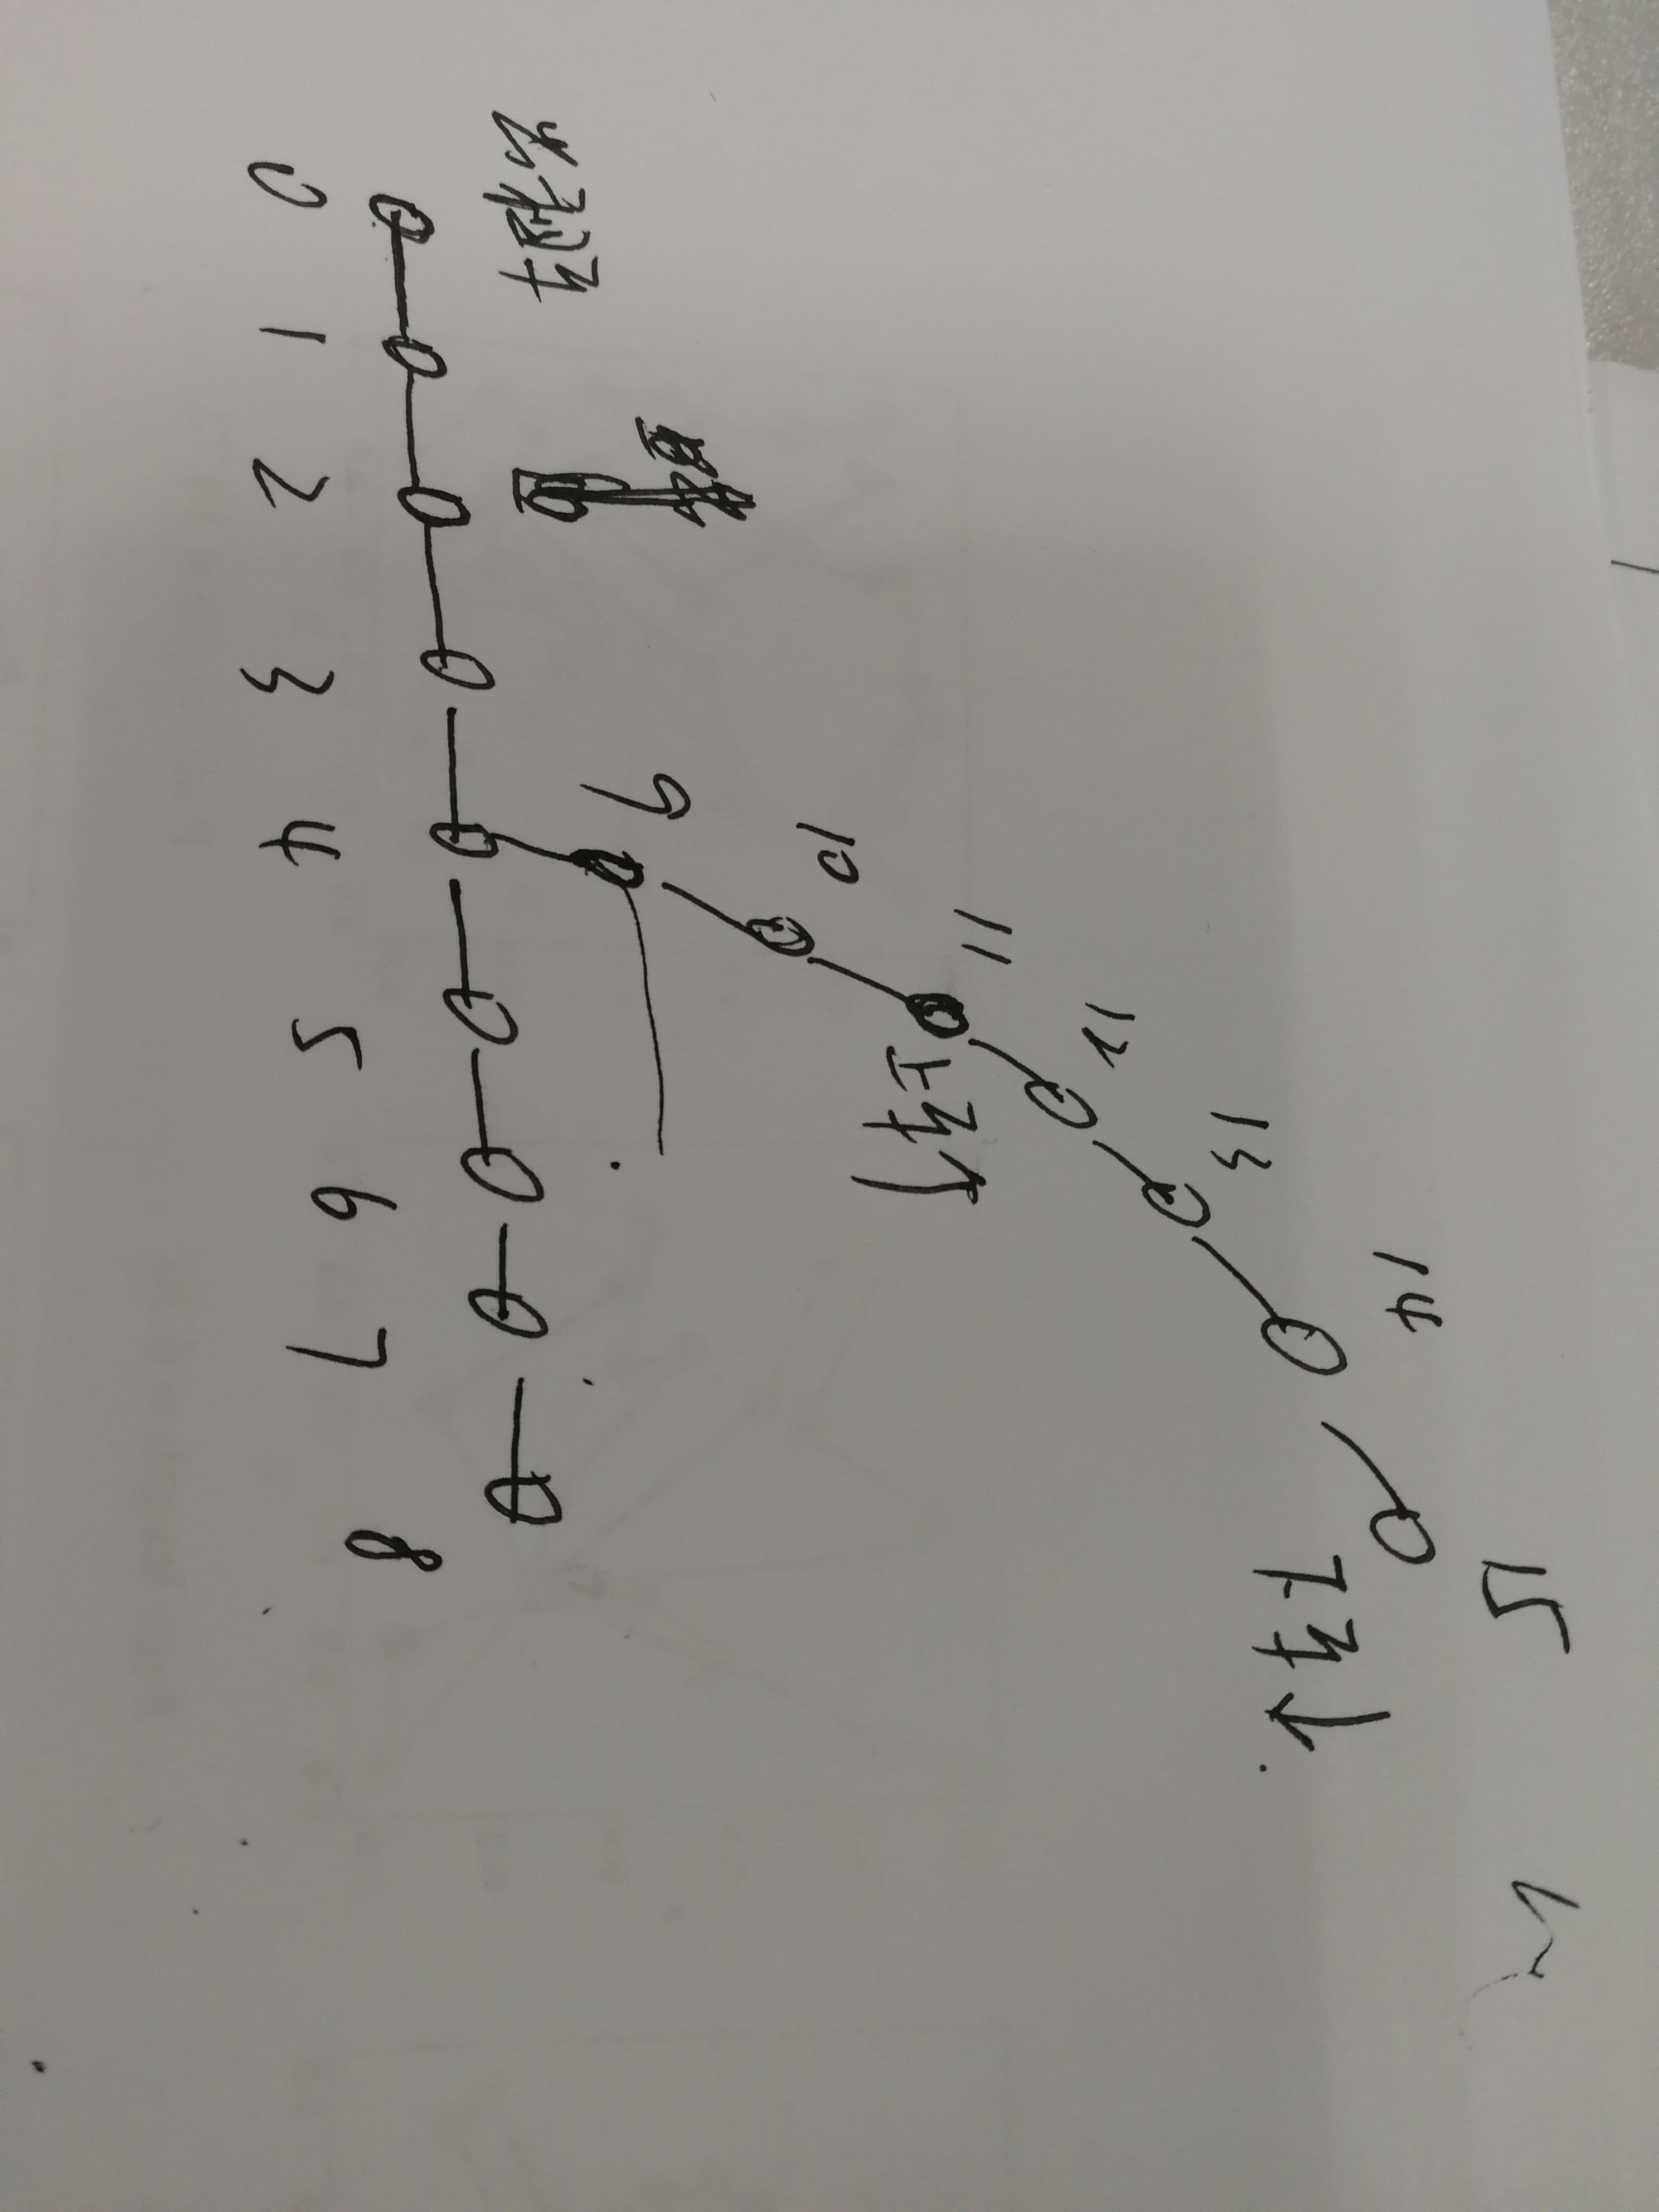 15
14
下车↓.
13
12
11
上车个
10
9
出租车
0 1 2 3 4 5 6 7 8